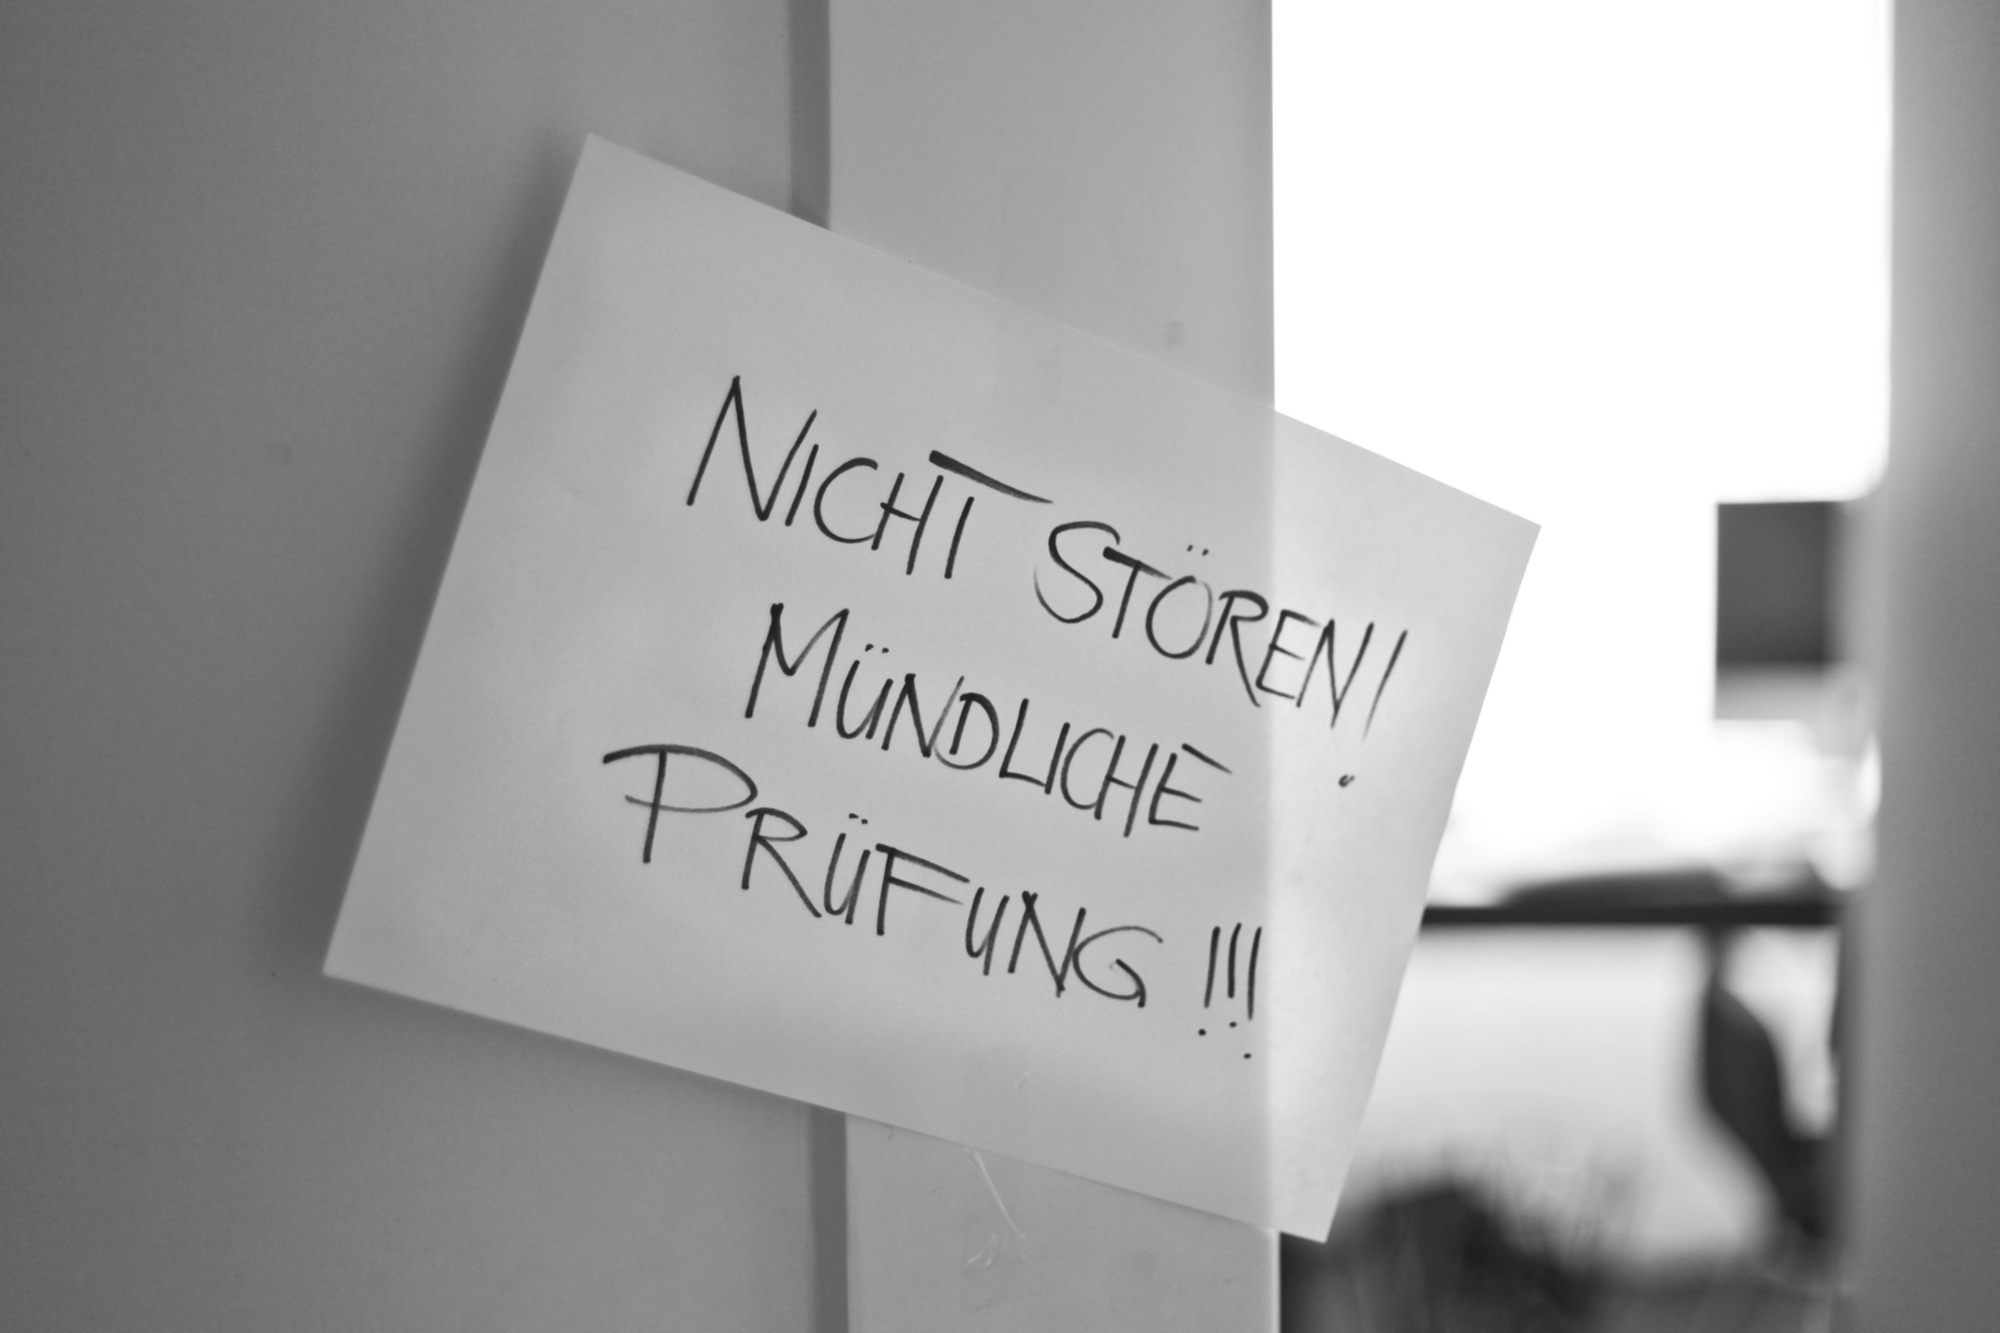 NICHT STÖREN!
MÜNDLICHE
PRÜFUNG !!!